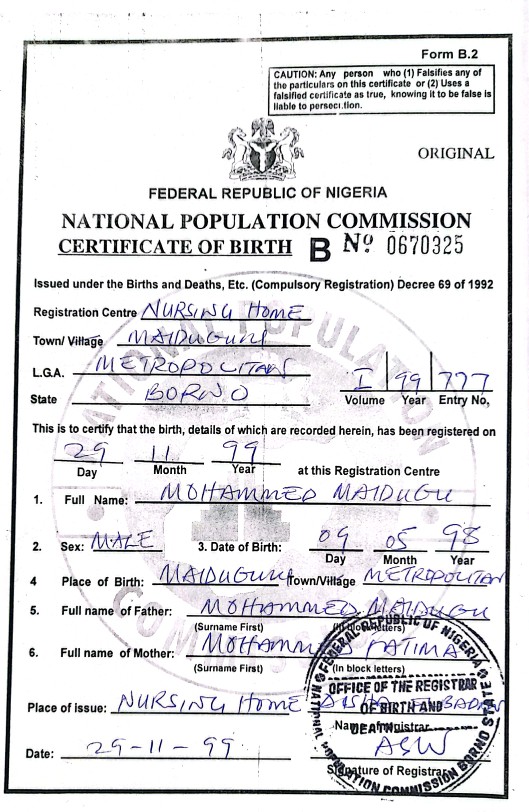 Form B.2
CAUTION: Any person who (1) Falsifies any of
the particulars on this certificate or (2) Uses a
falsified certificate as true, knowing it to be false is
liable to persecution.
ORIGINAL
FEDERAL REPUBLIC OF NIGERIA
NATIONAL POPULATION COMMISSION
CERTIFICATE OF BIRTH B No 0670325
Issued under the Births and Deaths, Etc. (Compulsory Registration) Decree 69 of 1992
Registration Centre NURSING HOME
Town/ Village MAIDUGURI
L.G.A. METROPOLITAN
State BORNO
I 99 777
Volume Year Entry No,
This is to certify that the birth, details of which are recorded herein, has been registered on
29 11 99
Day Month Year at this Registration Centre
1. Full Name: MOHAMMED MAIDUGU
2. Sex: MALE 3. Date of Birth: 09 05 98
Day Month Year
4 Place of Birth: MAIDUGURI Town/Village METROPOLITAN
5. Full name of Father: MOHAMMED MAIDUGU
(Surname First) (In block letters)
6. Full name of Mother: MOHAMMED FATIMA
(Surname First) (In block letters)
Place of issue: NURSING HOME
Name Registrar
Date: 29-11-99 ASW
Signature of Registrar
FEDERAL REPUBLIC OF NIGERIA
OFFICE OF THE REGISTRAR
OF BIRTH AND
DEATH
NATIONAL POPULATION COMMISSION BORNO STATE
NATIONAL POPULATION
COMMISSION